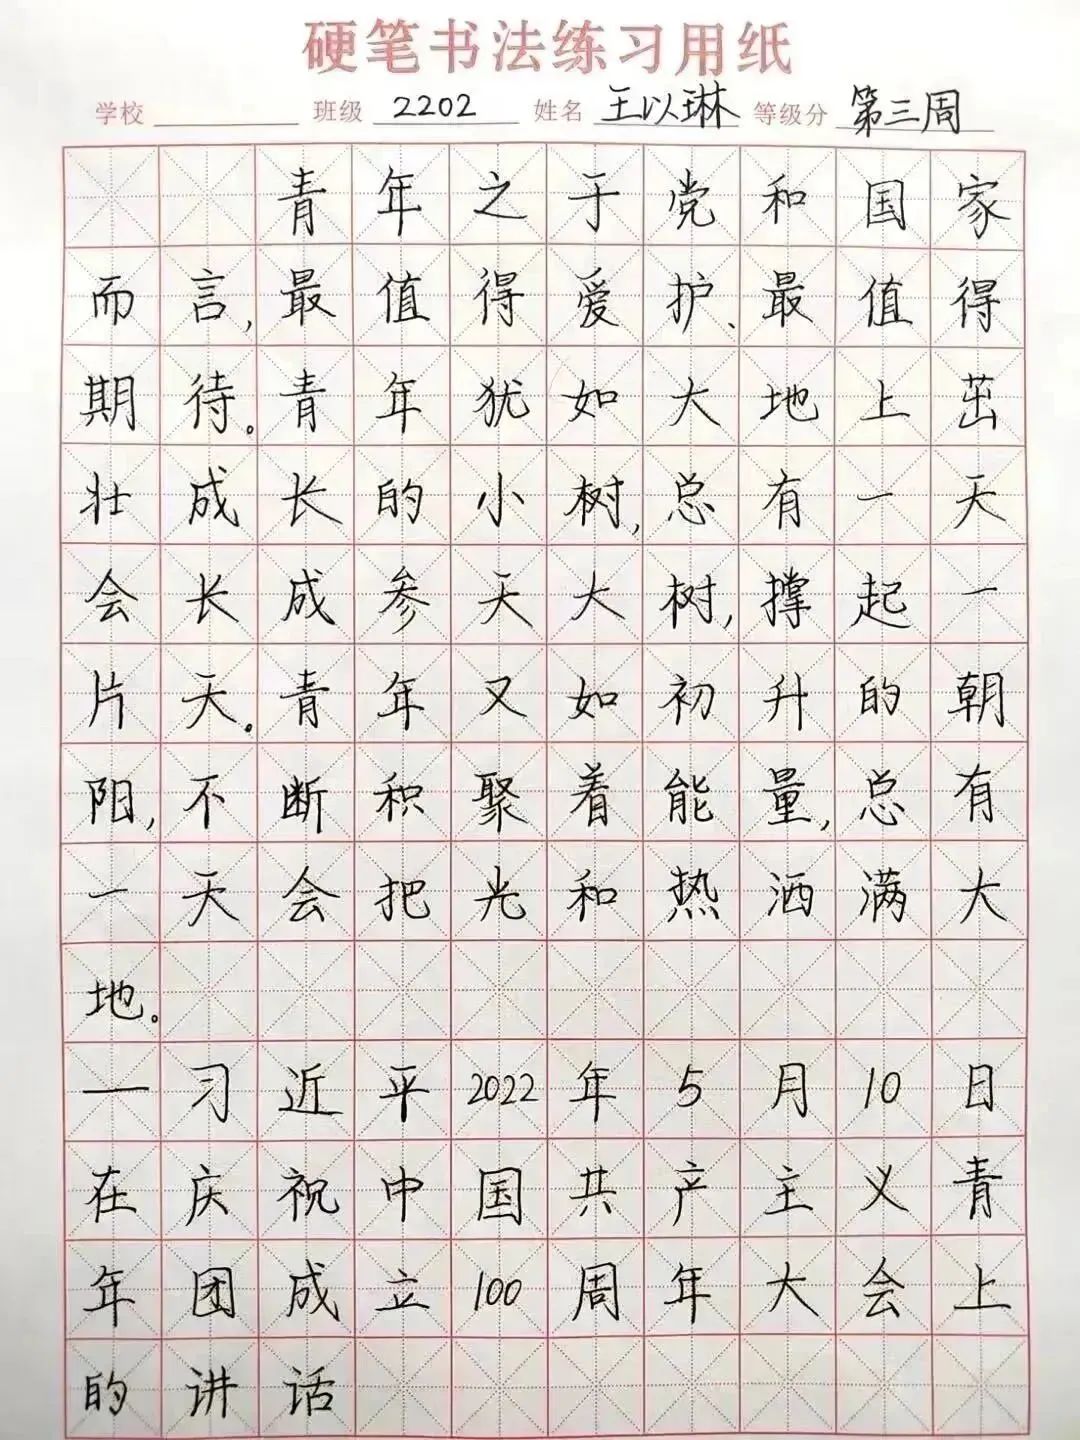 硬笔书法练习用纸
学校 班级 2202 姓名 王以琳 等级分 第三周
青年之于党和国家
而言,最值得爱护、最值得
期待。青年犹如大地上茁
壮成长的小树,总有一天
会长成参天大树,撑起一
片天。青年又如初升的朝
阳,不断积聚着能量,总有
一天会把光和热洒满大
地。
—习近平2022年5月10日
在庆祝中国共产主义青
年团成立100周年大会上
的讲话